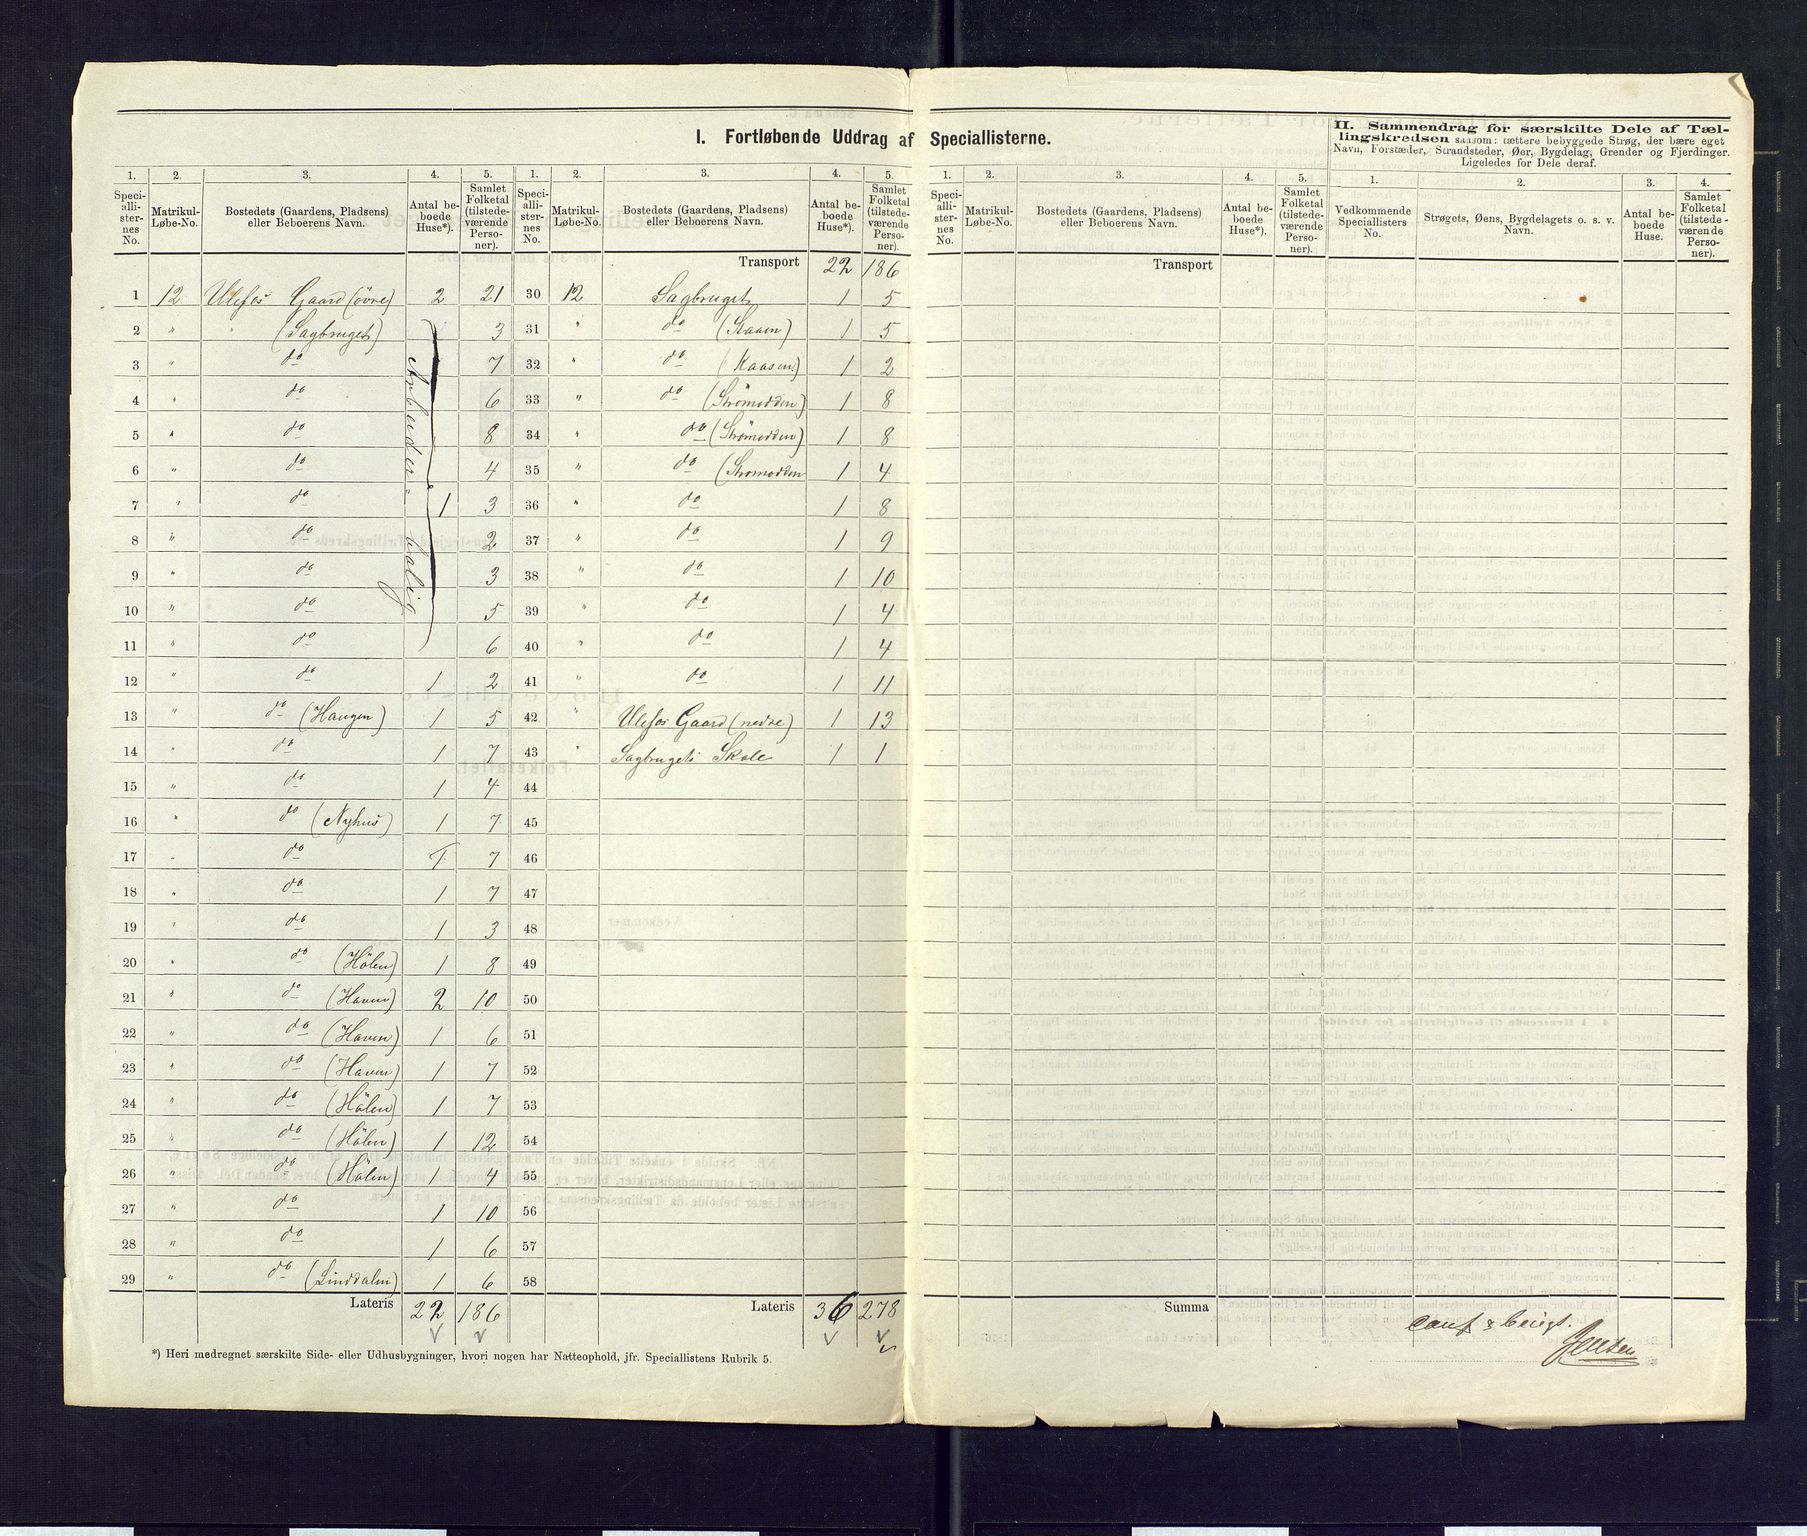 I. Fortløbende Uddrag af Speciallisterne.
II. Sammendrag for særskilte Dele af Tællingskredsen saasom: tættere bebyggede Strøg, der bære eget
Navn, Forstæder, Strandsteder, Øer, Bygdelag, Grender og Fjerdinger.
Ligeledes for Dele deraf.
1. 2. 3. 4. 5. 1. 2. 3. 4. 5. 1. 2. 3. 4. 5. 1. 2. 3. 4.
Speciallisternes No. Matrikul-Løbe-No. Bostedets (Gaardens, Pladsens) eller Beboerens Navn. Antal beboede Huse*). Samlet Folketal (tilstedeværende Personer).
Speciallisternes No. Matrikul-Løbe-No. Bostedets (Gaardens, Pladsens) eller Beboerens Navn. Antal beboede Huse*). Samlet Folketal (tilstedeværende Personer).
Speciallisternes No. Matrikul-Løbe-No. Bostedets (Gaardens, Pladsens) eller Beboerens Navn. Antal beboede Huse*). Samlet Folketal (tilstedeværende Personer).
Vedkommende Speciallisters No. Strøgets, Øens, Bygdelagets o. s. v. Navn. Antal beboede Huse. Samlet Folketal (tilstedeværende Personer).
Transport 22 186 Transport
1 12 Ulefos Gaard (øvre) 2 21 30 12 Sagbruget 1 5
2 " " (Sagbruget) 3 31 " do (Staaen) 1 5
3 " do 7 32 " do (Kaasen) 1 2
4 " do 6 33 " do (Strømodden) 1 8
5 " do 8 34 " do (Strømodden) 1 8
6 " do 4 35 " do (Strømodden 1 4
7 " do 1 3 36 " do 1 8
8 " do 2 37 " do 1 9
9 " do 3 38 " do 1 10
10 " do 5 39 " do 1 4
11 " do 6 40 " do 1 4
Arbeider-bolig
12 " do 1 2 41 " do 1 11
13 " do (Haugen) 1 5 42 " Ulefos Gaard (nedre) 1 13
14 " do 1 7 43 " Sagbrugets Skole 1 1
15 " do 1 4 44
16 " do (Nyhus) 1 7 45
17 " do 1 7 46
18 " do 1 7 47
19 " do 1 3 48
20 " do (Hölen) 1 8 49
21 " do (Haven) 2 10 50
22 " do (Haven) 1 6 51
23 " do (Haven) 1 7 52
24 " do (Hölen) 1 7 53
25 " do (Hölen) 1 12 54
26 " do (Hölen) 1 4 55
27 " do 1 10 56
28 " do 1 6 57
29 " do (Linddalen) 1 6 58
Lateris 22 186 Lateris 36 278 Summa
Conf & beregt.
Jensen
*) Heri medregnet særskilte Side- eller Udhusbygninger, hvori nogen har Natteophold, jfr. Speciallistens Rubrik 5.